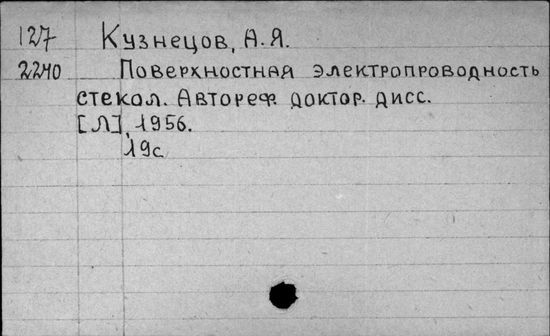 127 Кузнецов, А.Я.
2240 Поверхностная электропроводность
стекол. Автореф. доктор. дисс.
[Л], 1956.
19с